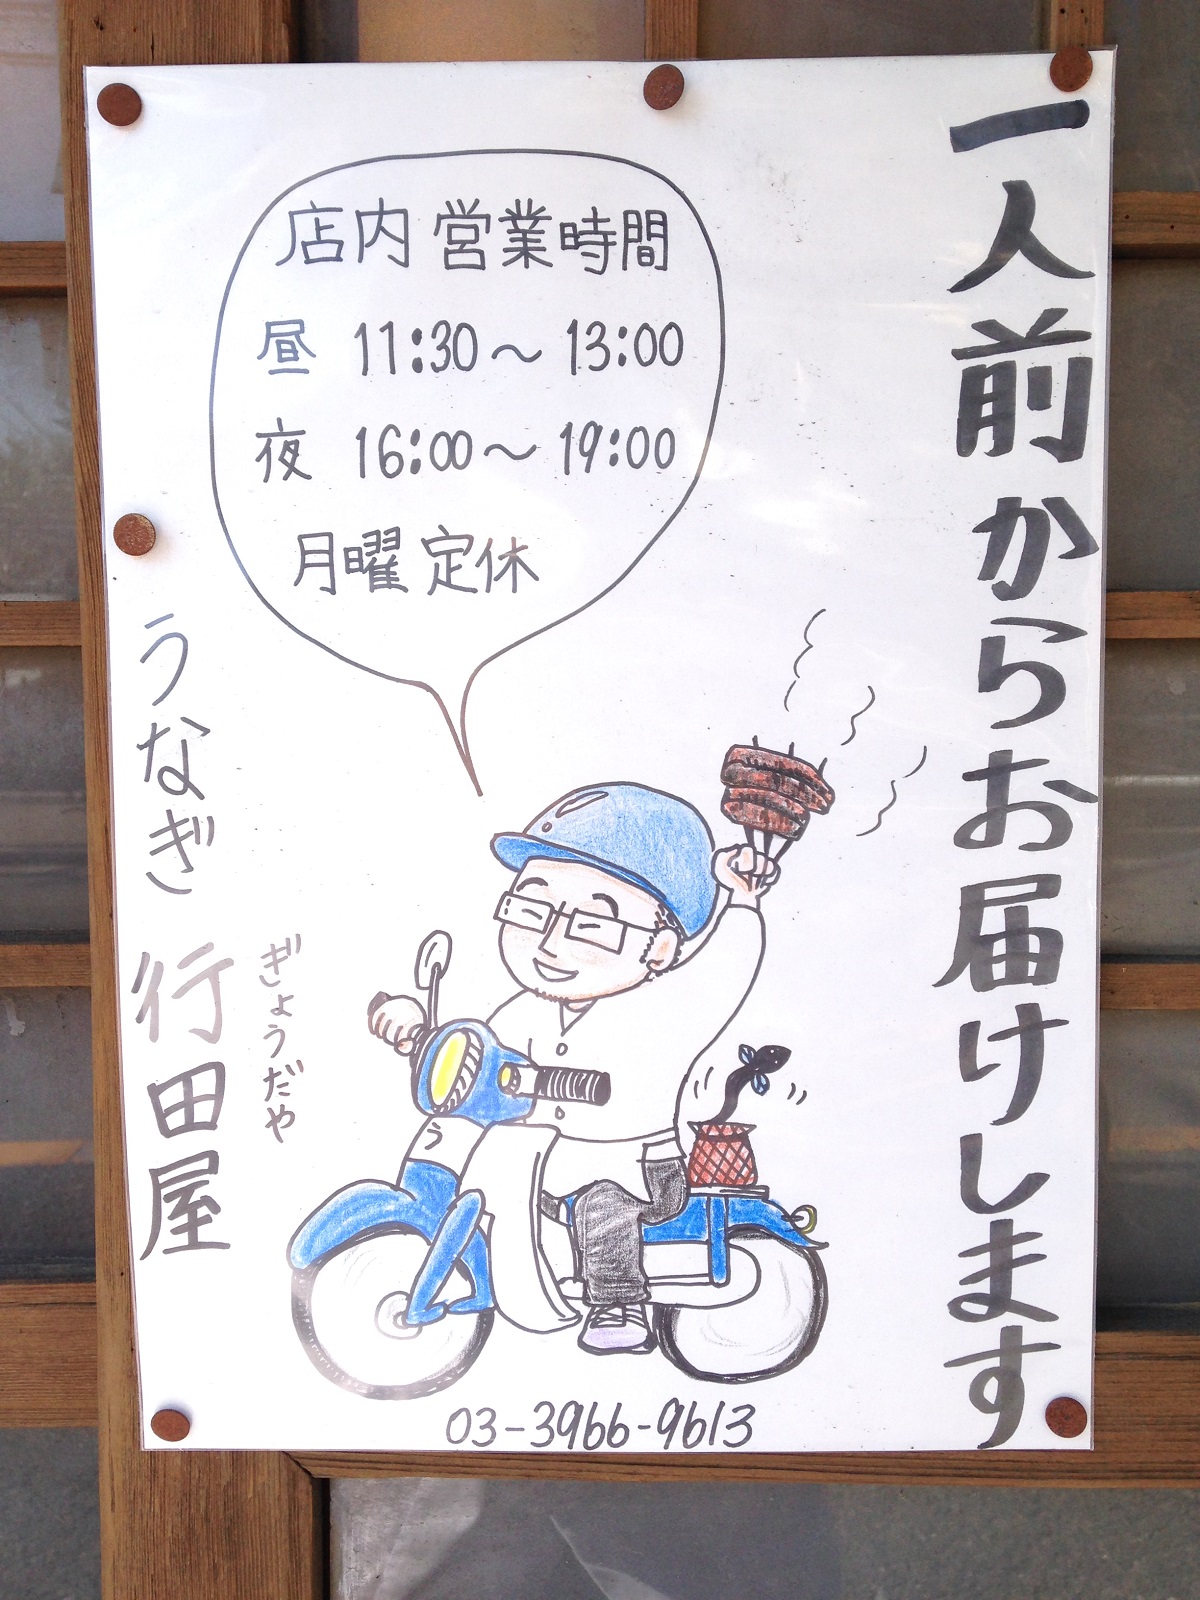 一人前からお届けします
店内 営業時間
昼 11:30～13:00
夜 16:00～19:00
月曜 定休
ぎょうだや
うなぎ 行田屋
う
03-3966-9613